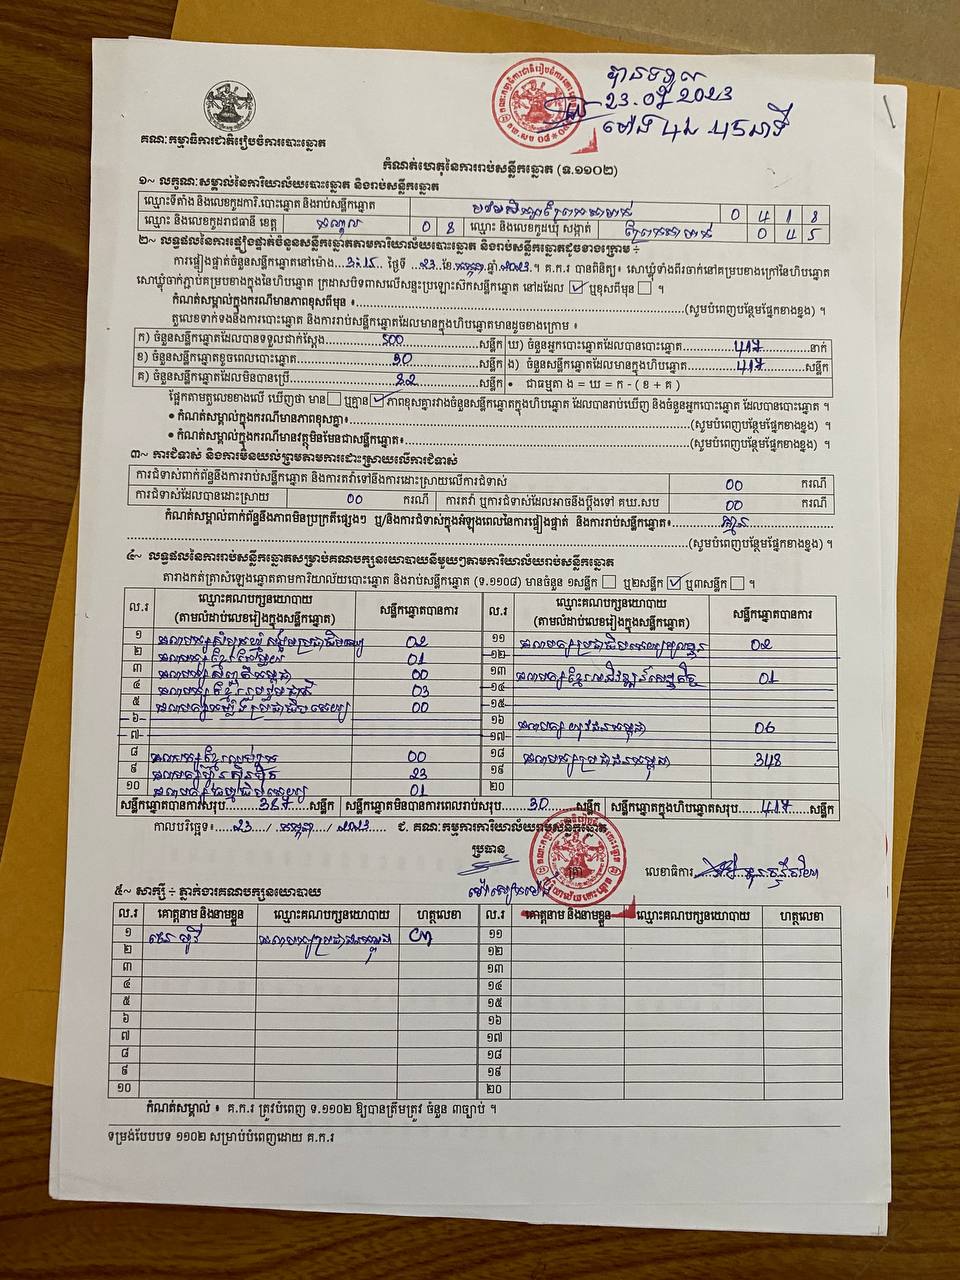 បានទទួល
23.07.2023
ម៉ោង 4 45នាទី
គណៈកម្មាធិការជាតិរៀបចំការបោះឆ្នោត
កំណត់ហេតុនៃការរាប់សន្លឹកឆ្នោត (ទ.១១០២)
១~ លក្ខណៈសម្គាល់នៃការិយាល័យបោះឆ្នោត និងរាប់សន្លឹកឆ្នោត
ឈ្មោះទីតាំង និងលេខកូដការិ.បោះឆ្នោត និងរាប់សន្លឹកឆ្នោត 0 4 1 8
ឈ្មោះ និងលេខកូដរាជធានី ខេត្ត កណ្តាល 0 8 ឈ្មោះ និងលេខកូដឃុំ សង្កាត់ 0 4 5
២~ លទ្ធផលនៃការផ្ទៀងផ្ទាត់ចំនួនសន្លឹកឆ្នោតតាមការិយាល័យបោះឆ្នោត និងរាប់សន្លឹកឆ្នោតដូចខាងក្រោម ÷
ការផ្ទៀងផ្ទាត់ចំនួនសន្លឹកឆ្នោតនៅម៉ោង 3:15 ថ្ងៃទី 23 ខែ កក្កដា ឆ្នាំ 2023 ។ គ.ក.រ បានពិនិត្យ៖ សោឃ្លុំទាំងពីរចាក់នៅគម្របខាងក្រៅនៃហិបឆ្នោត
សោឃ្លុំចាក់ភ្ជាប់គម្របខាងក្នុងនៃហិបឆ្នោត ក្រដាសបិទពាសលើសន្ទះប្រឡោះសិកសន្លឹកឆ្នោត នៅដដែល ☑ ឬខុសពីមុន ☐ ។
កំណត់សម្គាល់ក្នុងករណីមានភាពខុសពីមុន ៖ (សូមបំពេញបន្ថែមផ្នែកខាងខ្នង) ។
តួលេខទាក់ទងនឹងការបោះឆ្នោត និងការរាប់សន្លឹកឆ្នោតដែលមានក្នុងហិបឆ្នោតមានដូចខាងក្រោម ៖
ក) ចំនួនសន្លឹកឆ្នោតដែលបានទទួលជាក់ស្តែង 500 សន្លឹក ឃ) ចំនួនអ្នកបោះឆ្នោតដែលបានបោះឆ្នោត 417 នាក់
ខ) ចំនួនសន្លឹកឆ្នោតខូចពេលបោះឆ្នោត សន្លឹក ង) ចំនួនសន្លឹកឆ្នោតក្នុងហិបឆ្នោត 417 សន្លឹក
គ) ចំនួនសន្លឹកឆ្នោតដែលមិនបានប្រើ សន្លឹក • ជាធម្មតា ង = ឃ = ក - ( ខ + គ )
ផ្អែកតាមតួលេខខាងលើ ឃើញថា មាន ☐ ឬគ្មាន ☑ ភាពខុសគ្នារវាងចំនួនសន្លឹកឆ្នោតក្នុងហិបឆ្នោត ដែលបានរាប់ឃើញ និងចំនួនអ្នកបោះឆ្នោត ដែលបានបោះឆ្នោត ។
• កំណត់សម្គាល់ក្នុងករណីមានភាពខុសគ្នា៖ (សូមបំពេញបន្ថែមផ្នែកខាងខ្នង) ។
• កំណត់សម្គាល់ក្នុងករណីមានវត្ថុមិនមែនជាសន្លឹកឆ្នោត៖ (សូមបំពេញបន្ថែមផ្នែកខាងខ្នង) ។
៣~ ការជំទាស់ និងការមិនយល់ព្រមតាមការដោះស្រាយលើការជំទាស់
ការជំទាស់ពាក់ព័ន្ធនឹងការរាប់សន្លឹកឆ្នោត និងការតវ៉ាទៅនឹងការដោះស្រាយលើការជំទាស់ 00 ករណី
ការជំទាស់ដែលបានដោះស្រាយ 00 ករណី ការតវ៉ា ឬការជំទាស់ដែលអាចនឹងប្តឹងទៅ គឃ.សប 00 ករណី
កំណត់សម្គាល់ពាក់ព័ន្ធនឹងភាពមិនប្រក្រតីផ្សេងៗ ឬ/និងការជំទាស់ក្នុងអំឡុងពេលនៃការផ្ទៀងផ្ទាត់ និងការរាប់សន្លឹកឆ្នោត៖ គ្មាន
(សូមបំពេញបន្ថែមផ្នែកខាងខ្នង) ។
៤~ លទ្ធផលនៃការរាប់សន្លឹកឆ្នោតសម្រាប់គណបក្សនយោបាយនីមួយៗតាមការិយាល័យរាប់សន្លឹកឆ្នោត
តារាងកត់ត្រាសំឡេងឆ្នោតតាមការិយាល័យបោះឆ្នោត និងរាប់សន្លឹកឆ្នោត (ទ.១១០៨) មានចំនួន ១សន្លឹក ☐ ឬ២សន្លឹក ☑ ឬ៣សន្លឹក ☐ ។
ល.រ ឈ្មោះគណបក្សនយោបាយ (តាមលំដាប់លេខរៀងក្នុងសន្លឹកឆ្នោត) សន្លឹកឆ្នោតបានការ ល.រ ឈ្មោះគណបក្សនយោបាយ (តាមលំដាប់លេខរៀងក្នុងសន្លឹកឆ្នោត) សន្លឹកឆ្នោតបានការ
១ 02 ១១ 02
២ 01 ១២
៣ 00 ១៣ 01
៤ 03 ១៤
៥ 00 ១៥
៦ ១៦ គណបក្សយុវជនកម្ពុជា 06
៧ ១៧
៨ 00 ១៨ គណបក្សប្រជាជនកម្ពុជា 348
៩ គណបក្សហ៊្វុនស៊ិនប៉ិច 23 ១៩
១០ គណបក្សធម្មាធិបតេយ្យ 01 ២០
សន្លឹកឆ្នោតបានការសរុប 387 សន្លឹក សន្លឹកឆ្នោតមិនបានការពេលរាប់សរុប 30 សន្លឹក សន្លឹកឆ្នោតក្នុងហិបឆ្នោតសរុប 417 សន្លឹក
កាលបរិច្ឆេទ៖ 23 / កក្កដា / 2023 ជ. គណៈកម្មការការិយាល័យរាប់សន្លឹកឆ្នោត
ប្រធាន
លេខាធិការ
៥~ សាក្សី ÷ ភ្នាក់ងារគណបក្សនយោបាយ
ល.រ គោត្តនាម និងនាមខ្លួន ឈ្មោះគណបក្សនយោបាយ ហត្ថលេខា ល.រ គោត្តនាម និងនាមខ្លួន ឈ្មោះគណបក្សនយោបាយ ហត្ថលេខា
១ គណបក្សប្រជាជនកម្ពុជា ១១
២ ១២
៣ ១៣
៤ ១៤
៥ ១៥
៦ ១៦
៧ ១៧
៨ ១៨
៩ ១៩
១០ ២០
កំណត់សម្គាល់ ៖ គ.ក.រ ត្រូវបំពេញ ទ.១១០២ ឱ្យបានត្រឹមត្រូវ ចំនួន ៣ច្បាប់ ។
ទម្រង់បែបបទ ១១០២ សម្រាប់បំពេញដោយ គ.ក.រ